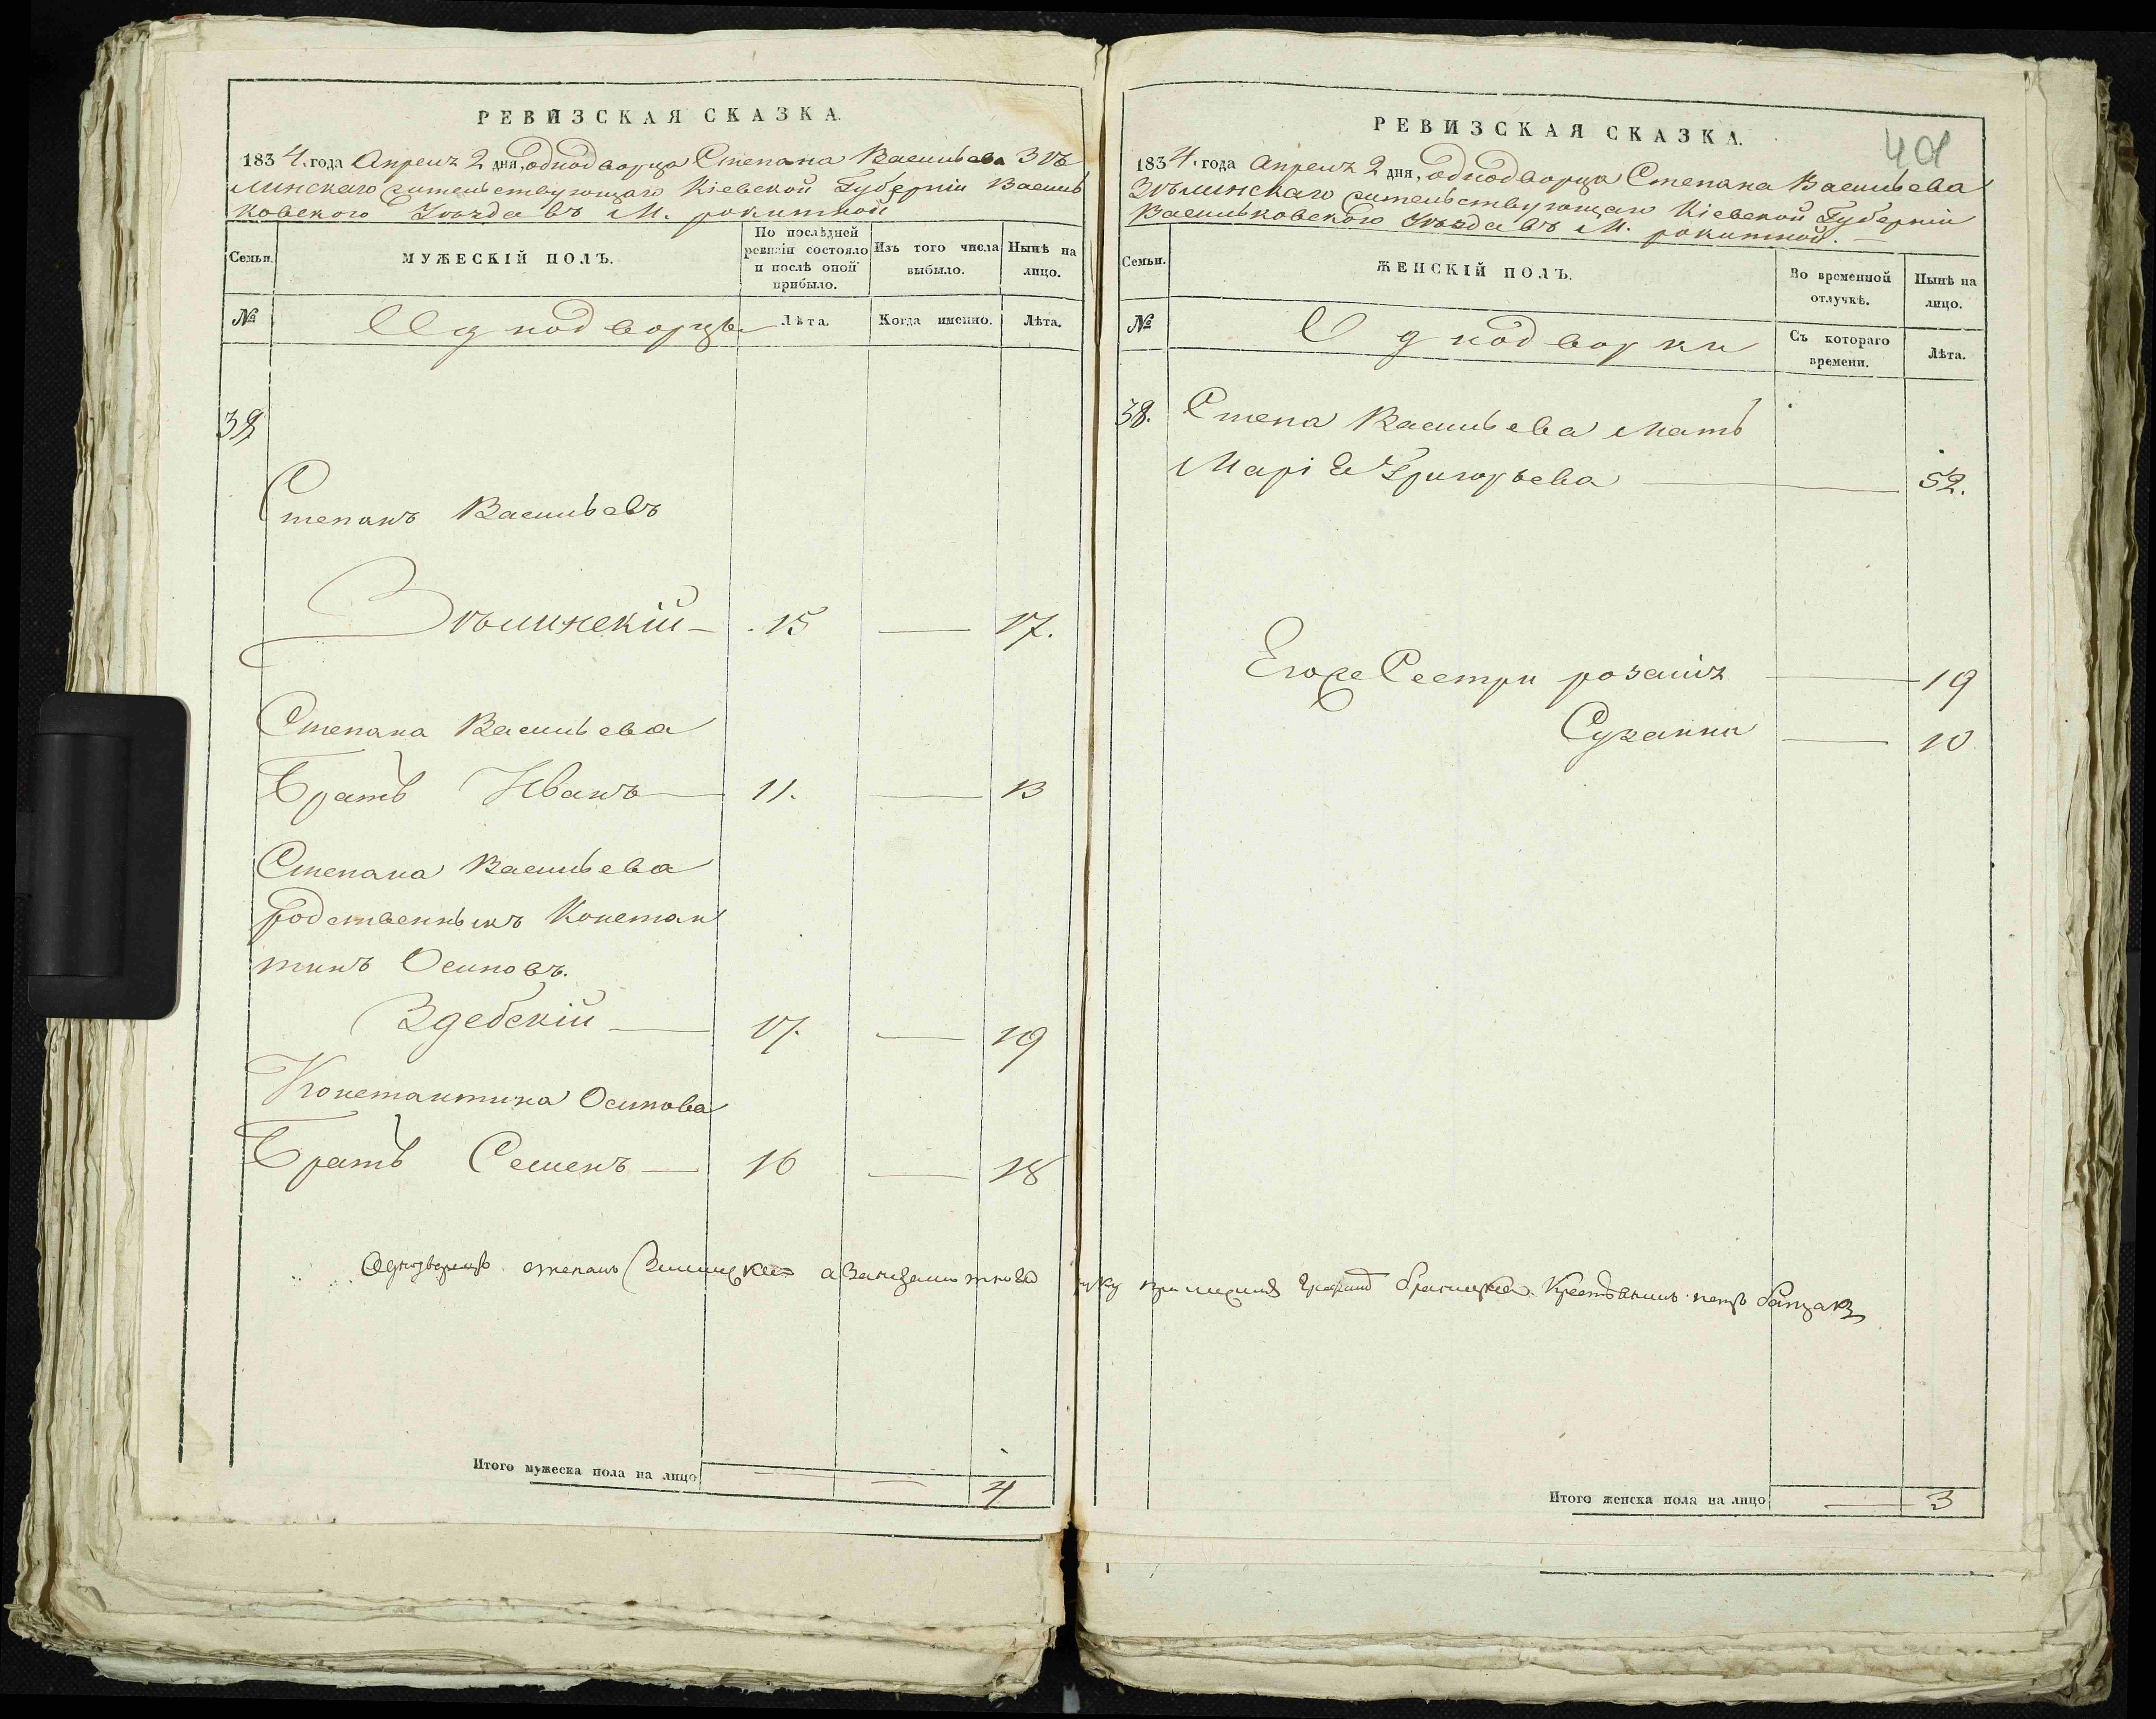 РЕВИЗСКАЯ СКАЗКА.
1834. года Апреля 2 дня, однодворца Степана Васильева Зѣ
линскаго жительствующаго Кіевской Губерніи Василь
ковского Уѣзда въ М. рокитной
Семьи. МУЖЕСКІЙ ПОЛЪ. По послѣдней ревизіи состояло и послѣ оной прибыло. Изъ того числа выбыло. Нынѣ на лицо.
№ Однодворцы Лѣта. Когда именно. Лѣта.
38
Степанъ Васильевъ
Зѣлинскій — 15 — 17.
Степана Васильева
Братъ Иванъ — 11. — 13
Степана Васильева
родственникъ Констан
тинъ Осиповъ.
Здебскій — 17. — 19
Константина Осипова
Братъ Семенъ — 16 — 18
Однодворецъ степанъ
Итого мужеска пола на лицо — — 4
РЕВИЗСКАЯ СКАЗКА.
401
1834. года Апреля 2 дня, однодворца Степана Васильева
Зѣлинскаго жительствующаго Кіевской Губерніи
Васильковского Уѣзда въ М. рокитной. —
Семьи. ЖЕНСКІЙ ПОЛЪ. Во временной отлучкѣ. Нынѣ на лицо.
№ Однодворки Съ котораго времени. Лѣта.
38. Степа Васильева Мать
Маріе Григорьева — 52.
Егоже Сестри розалія — 19
Сузанна — 10
Итого женска пола на лицо — 3